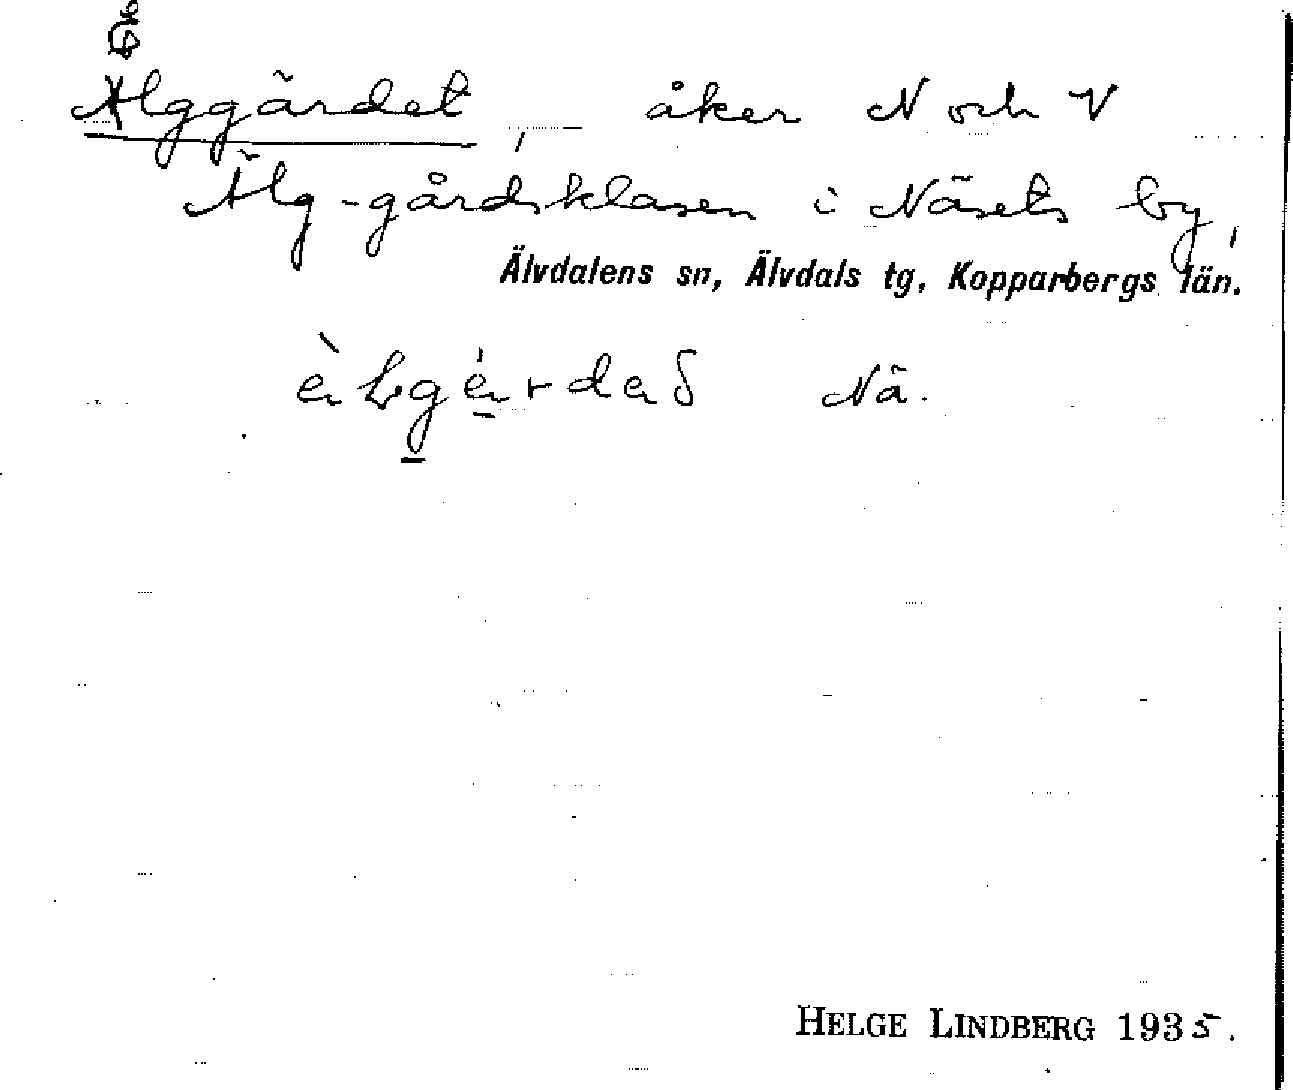 Älggärdet, åker N och V
Älg-gårdsklasen i Näsets by,
Älvdalens sn, Älvdals tg, Kopparbergs län.
Nä.
HELGE LINDBERG 1935.